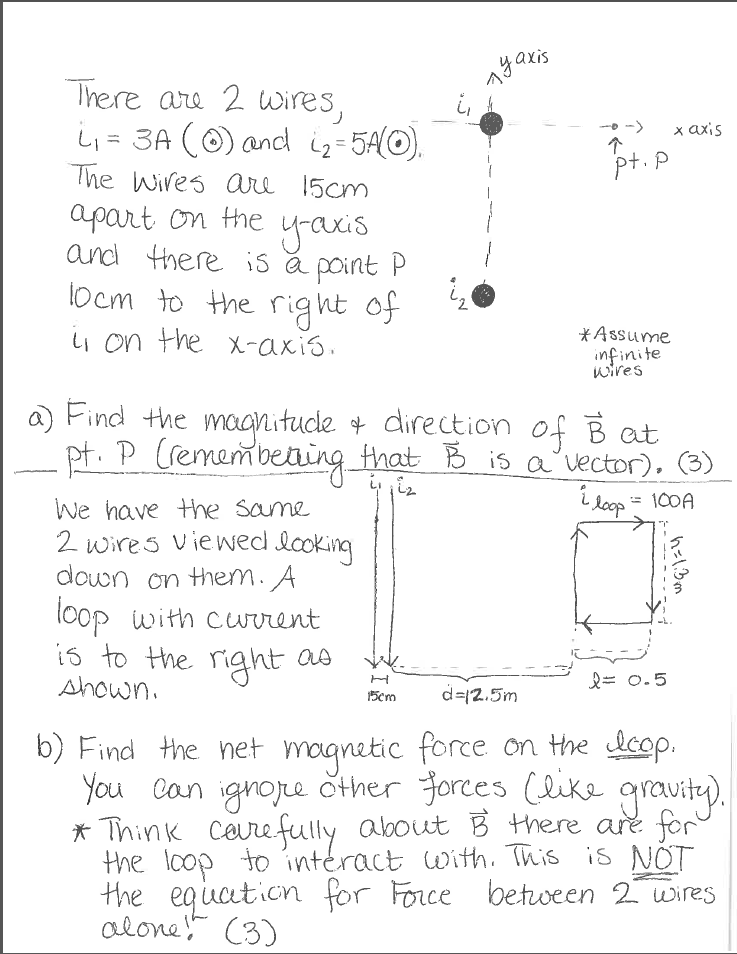 There are 2 wires,
i₁ = 3A (⊙) and i₂ = 5A(⊙).
The wires are 15cm
apart on the y-axis
and there is a point P
10cm to the right of
i₁ on the x-axis.
y axis
i₁
x axis
pt. P
i₂
*Assume
infinite
wires
a) Find the magnitude & direction of B⃗ at
pt. P (remembering that B⃗ is a vector). (3)
We have the same
2 wires viewed looking
down on them. A
loop with current
is to the right as
shown.
i₁ i₂
i loop = 100A
h=1.3m
15cm
d=12.5m
l= 0.5
b) Find the net magnetic force on the loop.
You can ignore other forces (like gravity).
* Think carefully about B⃗ there are for
the loop to interact with. This is NOT
the equation for Force between 2 wires
alone! (3)